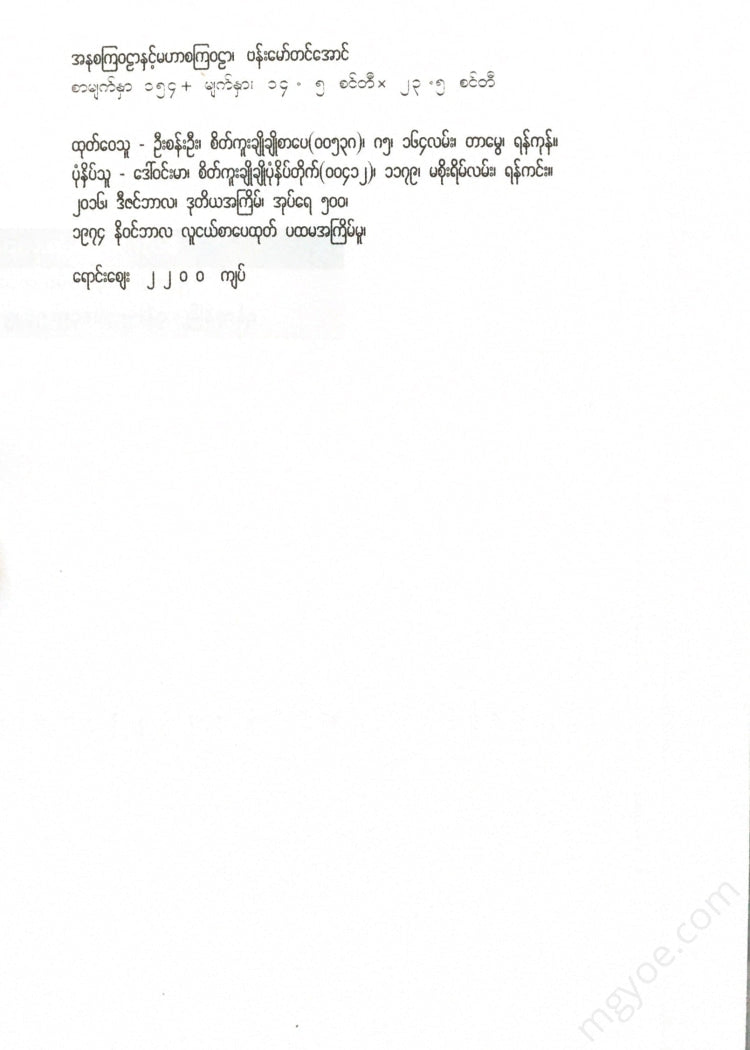 အနုစကြဝဠာနှင့်မဟာစကြဝဠာ၊ ဗန်းမော်တင်အောင်
စာမျက်နှာ ၁၅၄ + မျက်နှာ၊ ၁၄ . ၅ စင်တီ x ၂၃ .၅ စင်တီ
ထုတ်ဝေသူ - ဦးစန်းဦး၊ စိတ်ကူးချိုချိုစာပေ(၀၀၅၃၈)၊ ဂ၅၊ ၁၆၄လမ်း၊ တာမွေ၊ ရန်ကုန်။
ပုံနှိပ်သူ - ဒေါ်ဝင်းမာ၊ စိတ်ကူးချိုချိုပုံနှိပ်တိုက်(၀၀၄၁၂)၊ ၁၁၇၉၊ မစိုးရိမ်လမ်း၊ ရန်ကင်း။
၂၀၁၆၊ ဒီဇင်ဘာလ၊ ဒုတိယအကြိမ်၊ အုပ်ရေ ၅၀၀၊
၁၉၇၄ နိုဝင်ဘာလ လူငယ်စာပေထုတ် ပထမအကြိမ်မူ၊
ရောင်းဈေး ၂၂၀၀ ကျပ်
mgyoe.com